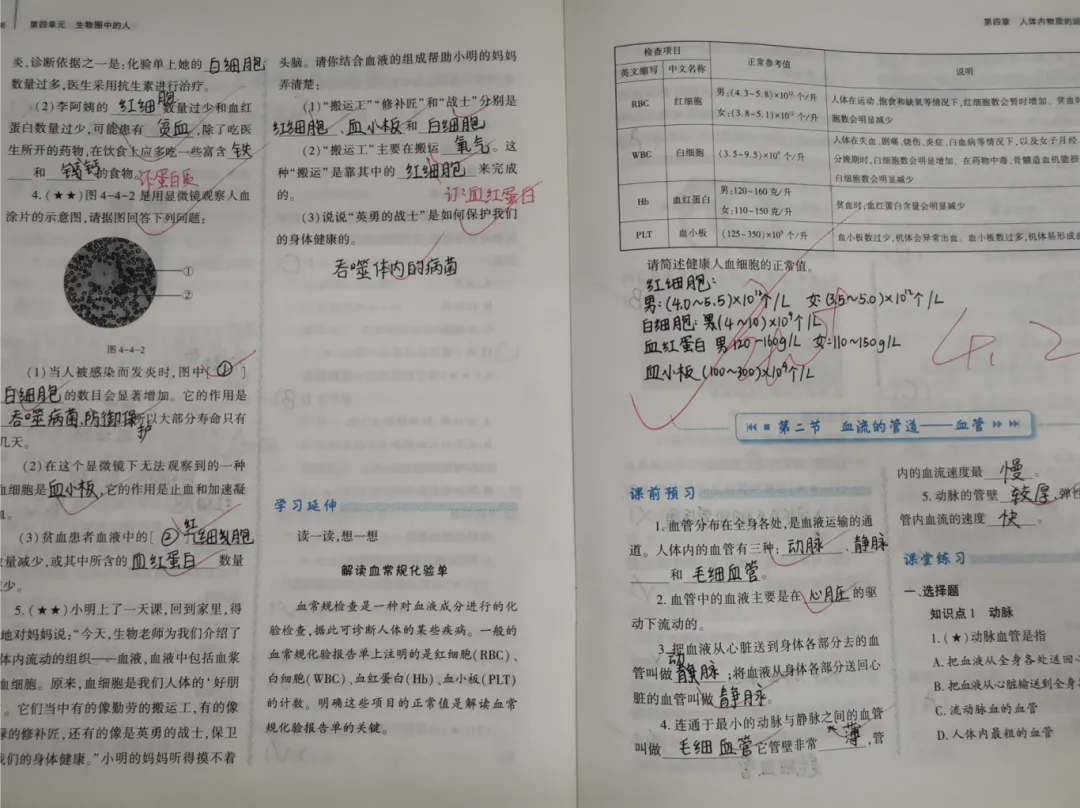 第四单元 生物圈中的人
炎,诊断依据之一是:化验单上她的 白细胞
数量过多,医生采用抗生素进行治疗。
(2)李阿姨的 红细胞 数量过少和血红
蛋白数量过少,可能患有 贫血 ,除了吃医
生所开的药物,在饮食上应多吃一些富含 铁
和 的食物。
蛋白质
4.(★★)图4-4-2是用显微镜观察人血
涂片的示意图,请据图回答下列问题:
①
②
图4-4-2
(1)当人被感染而发炎时,图中[ ① ]
白细胞 的数目会显著增加。它的作用是
吞噬病菌,防御保护 所以大部分寿命只有
几天。
(2)在这个显微镜下无法观察到的一种
血细胞是 血小板 ,它的作用是止血和加速凝
血。
(3)贫血患者血液中的[ ② 红细胞
数量减少,或其中所含的 血红蛋白 数量
5.(★★)小明上了一天课,回到家里,得
地对妈妈说:“今天,生物老师为我们介绍了
体内流动的组织——血液,血液中包括血浆
血细胞。原来,血细胞是我们人体的‘好朋
。它们当中有的像勤劳的搬运工,有的像
的修补匠,还有的像是英勇的战士,保卫
我们的身体健康。”小明的妈妈听得摸不着
头脑。请你结合血液的组成帮助小明的妈妈
弄清楚:
(1)“搬运工”“修补匠”和“战士”分别是
红细胞 、 血小板 和 白细胞
(2)“搬运工”主要在搬运 氧气 。这
种“搬运”是靠其中的 红细胞 来完成
的。
订:血红蛋白
(3)说说“英勇的战士”是如何保护我们
的身体健康的。
吞噬体内的病菌
学习延伸
读一读,想一想
解读血常规化验单
血常规检查是一种对血液成分进行的化
验检查,据此可诊断人体的某些疾病。一般的
血常规化验报告单上注明的是红细胞(RBC)、
白细胞(WBC)、血红蛋白(Hb)、血小板(PLT)
的计数。明确这些项目的正常值是解读血常
规化验报告单的关键。
第四章 人体内物质的运
检查项目
正常参考值
说明
英文缩写 中文名称
RBC 红细胞
男:(4.3~5.8)×10¹²个/升
女:(3.8~5.1)×10¹²个/升
人体在运动、饱食和缺氧等情况下,红细胞数会暂时增加。贫血时
胞数会明显减少
WBC 白细胞 (3.5~9.5)×10⁹个/升
人体在失血、剧痛、烧伤、炎症、白血病等情况下,以及女子月经
分娩期时,白细胞数会明显增加。在药物中毒、骨髓造血机能损
白细胞数会明显减少
Hb 血红蛋白
男:120~160克/升
女:110~150克/升
贫血时,血红蛋白含量会明显减少
PLT 血小板 (125~350)×10⁹个/升
血小板数过少,机体会异常出血。血小板数过多,机体易形成血
请简述健康人血细胞的正常值。
红细胞:
男:(4.0~5.5)×10¹²个/L 女:(3.5~5.0)×10¹²个/L
白细胞:男(4~10)×10⁹个/L
血红蛋白 男120~160g/L 女:110~150g/L
血小板(100~300)×10⁹个/L
4.2
第二节 血流的管道——血管
课前预习
1.血管分布在全身各处,是血液运输的通
道。人体内的血管有三种: 动脉 、 静脉
和 毛细血管 。
2.血管中的血液主要是在 心脏 的驱
动下流动的。
3.把血液从心脏送到身体各部分去的血
动
管叫做 静脉 ;将血液从身体各部分送回心
脏的血管叫做 静脉 。
4.连通于最小的动脉与静脉之间的血管
叫做 毛细血管 它管壁非常 薄 ,管
内的血流速度最 慢 。
5.动脉的管壁 较厚 ,弹性
管内血流的速度 快 。
课堂练习
一、选择题
知识点1 动脉
1.(★)动脉血管是指
A.把血液从全身各处送回心
B.把血液从心脏输送到全身
C.流动脉血的血管
D.人体内最粗的血管